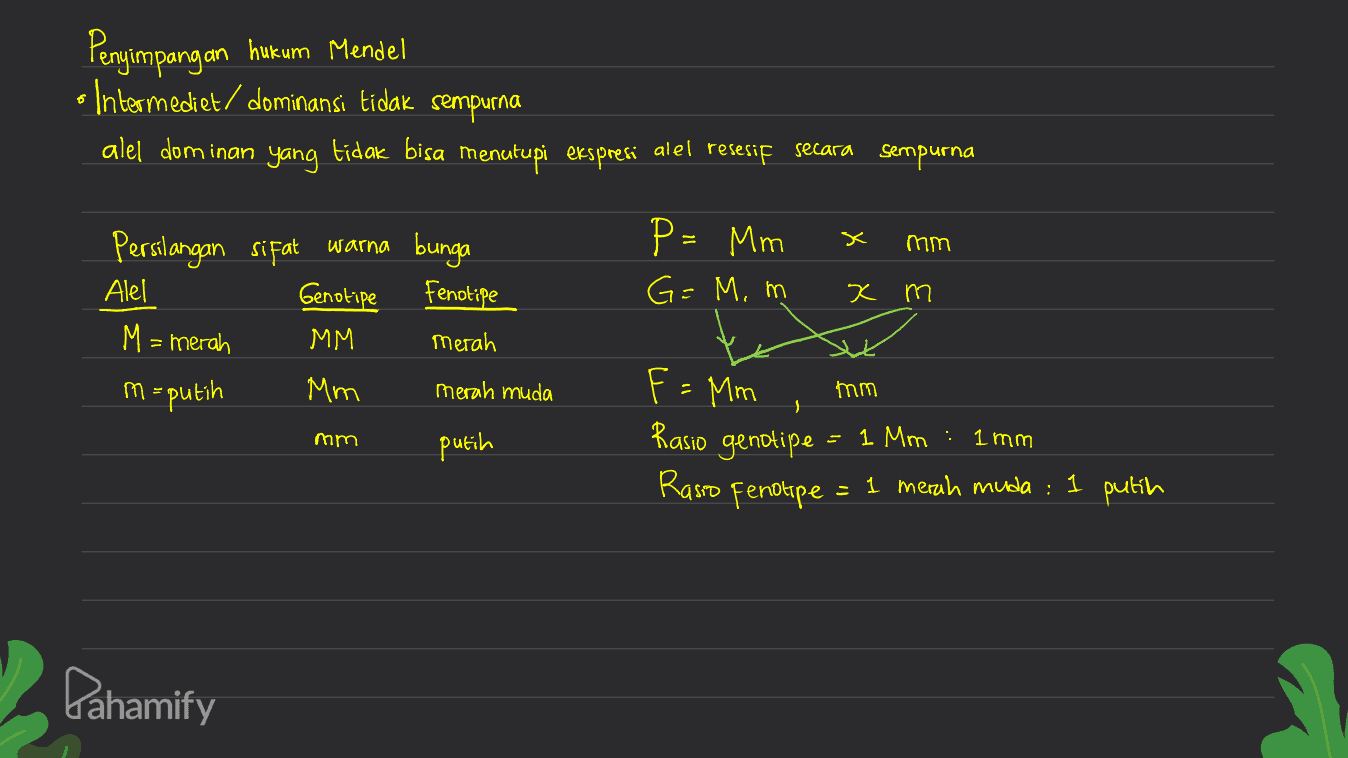 Penyimpangan hukum Mendel
• Intermediet / dominansi tidak sempurna
alel dominan yang tidak bisa menutupi ekspresi alel resesif secara sempurna
Persilangan sifat warna bunga
Alel Genotipe Fenotipe
M = merah MM merah
m = putih Mm merah muda
mm putih
P = Mm x mm
G = M, m x m
F = Mm , mm
Rasio genotipe = 1 Mm : 1 mm
Rasio Fenotipe = 1 merah muda : 1 putih
Pahamify